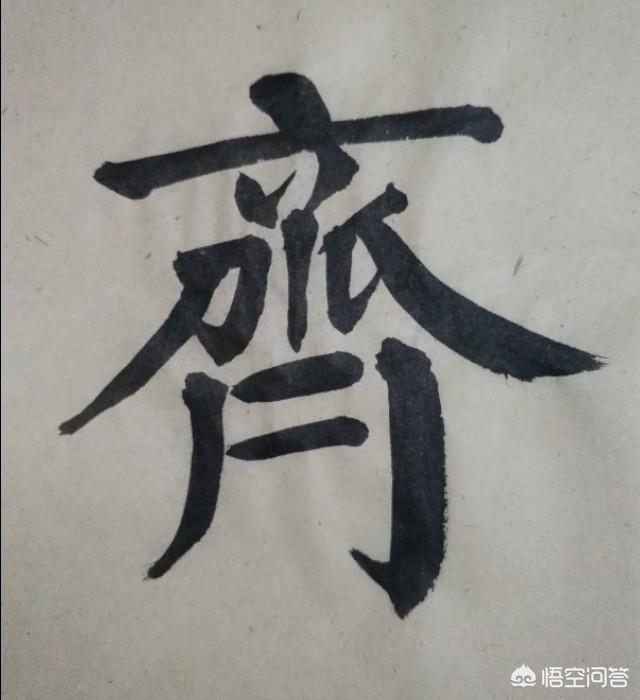 齊
悟空问答